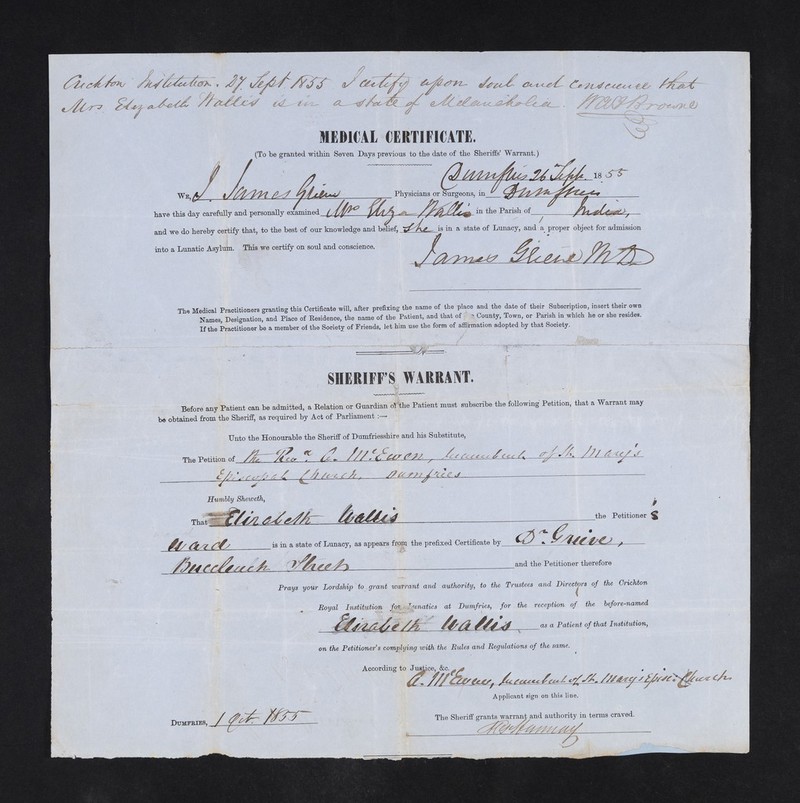 Crichton Institution. 27 Sept 1855 I certify upon soul and conscience that
Mrs Elizabeth Wallis is in a state of Melancholia. W A F Browne
MEDICAL CERTIFICATE.
(To be granted within Seven Days previous to the date of the Sheriffs' Warrant.)
Dumfries 26 Sept. 1855
WE, I. James Grieve Physicians or Surgeons, in Dumfries
have this day carefully and personally examined Mrs Eliza Wallis in the Parish of India,
and we do hereby certify that, to the best of our knowledge and belief, She is in a state of Lunacy, and a proper object for admission
into a Lunatic Asylum. This we certify on soul and conscience.
James Grieve M D
The Medical Practitioners granting this Certificate will, after prefixing the name of the place and the date of their Subscription, insert their own
Names, Designation, and Place of Residence, the name of the Patient, and that of County, Town, or Parish in which he or she resides.
If the Practitioner be a member of the Society of Friends, let him use the form of affirmation adopted by that Society.
SHERIFF'S WARRANT.
Before any Patient can be admitted, a Relation or Guardian of the Patient must subscribe the following Petition, that a Warrant may
be obtained from the Sheriff, as required by Act of Parliament :—
Unto the Honourable the Sheriff of Dumfriesshire and his Substitute,
The Petition of the Revd. A. McEwen, Incumbent of St. Mary's
Episcopal Church, Dumfries
Humbly Sheweth,
That Elizabeth Wallis the Petitioner's
Ward is in a state of Lunacy, as appears from the prefixed Certificate by Dr. Grieve,
Buccleuch Street and the Petitioner therefore
Prays your Lordship to grant warrant and authority, to the Trustees and Directors of the Crichton
Royal Institution for Lunatics at Dumfries, for the reception of the before-named
Elizabeth Wallis as a Patient of that Institution,
on the Petitioner's complying with the Rules and Regulations of the same.
According to Justice, &c.
A. McEwen, Incumbent of St. Mary's Episc. Church
Applicant sign on this line.
DUMFRIES, 1 Oct. 1855 The Sheriff grants warrant and authority in terms craved.
Hannay